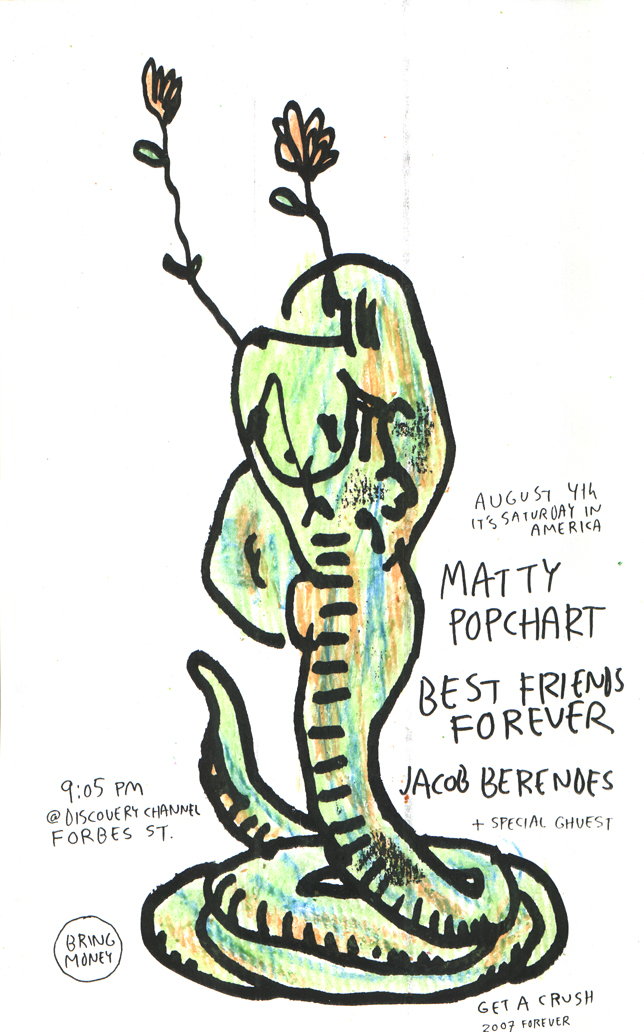 AUGUST 4th
IT'S SATURDAY IN
AMERICA
MATTY
POPCHART
BEST FRIENDS
FOREVER
JACOB BERENDES
+ SPECIAL GHUEST
9:05 PM
@ DISCOVERY CHANNEL
FORBES ST.
BRING
MONEY
GET A CRUSH
2007 FOREVER